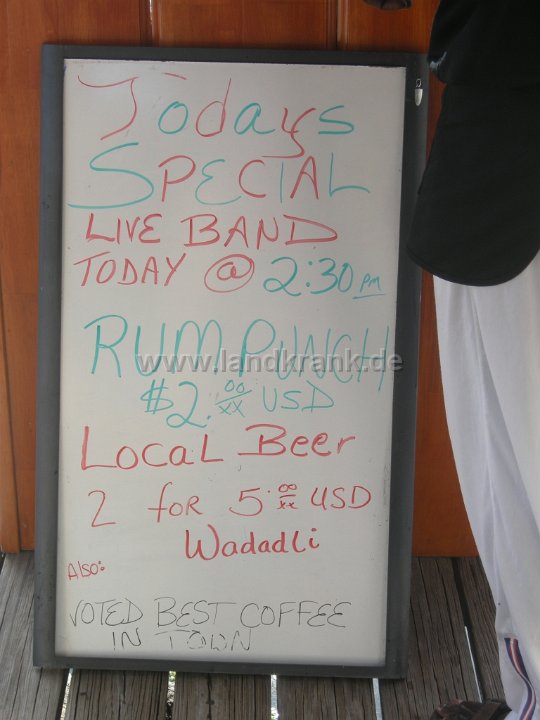 Todays
SPECIAL
LIVE BAND
TODAY @ 2:30 PM
RUM PUNCH
www.landkrank.de
$2.00/xx USD
LOCAL BEER
2 for 5.00/xx USD
Wadadli
Also:
VOTED BEST COFFEE
IN TOWN